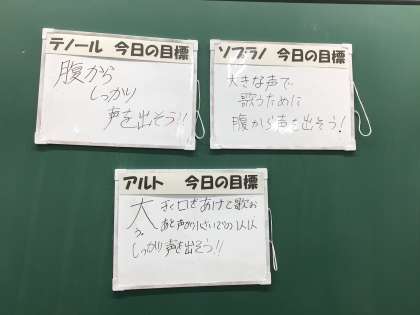 テノール 今日の目標
腹から
しっかり
声を出そう!!
ソプラノ 今日の目標
大きな声で
歌うために
腹から声を出そう!
アルト 今日の目標
大きく口をあけて歌お
う。あと声が小さいので1人1人
しっかり声を出そう!!